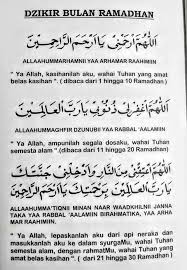 DZIKIR BULAN RAMADHAN
اَللّٰهُمَّ ارْحَمْنِيْ يَا اَرْحَمَ الرَّاحِمِيْنَ
ALLAAHUMMARHAMNII YAA ARHAMAR RAAHIMIIN
" Ya Allah, kasihanilah aku, wahai Tuhan yang amat
belas kasihan ". (dibaca dari 1 hingga 10 Ramadhan )
اَللّٰهُمَّ اغْفِرْ لِيْ ذُنُوْبِيْ يَا رَبَّ الْعَالَمِيْنَ
ALLAAHUMMAGHFIR DZUNUBII YAA RABBAL 'AALAMIIN
" Ya Allah, ampunilah segala dosaku, wahai Tuhan
semesta alam ". ( dibaca dari 11 hingga 20 Ramadhan )
يَا رَبَّ الْعَالَمِيْنَ بِرَحْمَتِكَ يَا اَرْحَمَ الرَّاحِمِيْنَ
JANNA
TAKA YAA RABBAL 'AALAMIIN BIRAHMATIKA, YAA ARHA
MAR RAAHIMIIN.
" Ya Allah, lepaskanlah aku dari api neraka dan
masukkanlah aku ke dalam syurgaMu, wahai Tuhan
semesta alam, dengan rahmatMu, wahai Tuhan yang
amat belas kasihan ". ( dari 21 hingga 30 Ramadhan)